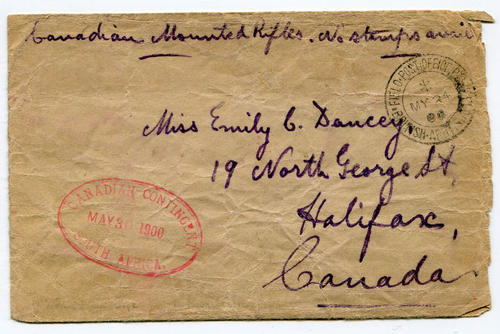 Canadian Mounted Rifles. No stamps avail
FIELD-POST-OFFICE BRITISH-ARMY
MY 24
00
Miss Emily C. Dancey
19 North George St,
Halifax,
Canada
CANADIAN CONTINGENT
MAY 30 1900
SOUTH AFRICA.